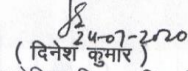 24-07-2020
( दिनेश कुमार )